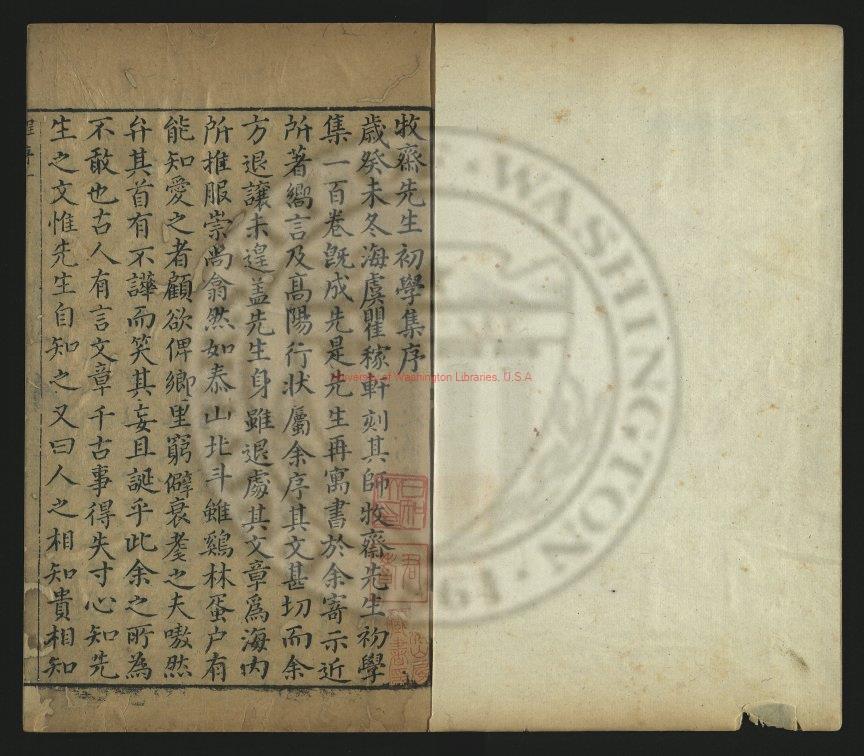 牧齋先生初學集序
歲癸未冬海虞瞿稼軒刻其師牧齋先生初學
集一百卷旣成先是先生再寓書於余寄示近
所著嚮言及高陽行狀屬余序其文甚切而余
方退讓未遑盖先生身雖退處其文章爲海內
所推服崇尚翕然如泰山北斗雖鷄林蛋户有
能知愛之者顧欲俾鄉里窮僻衰耄之夫嗷然
弁其首有不譁而笑其妄且誕乎此余之所為
不敢也古人有言文章千古事得失寸心知先
生之文惟先生自知之又曰人之相知貴相知
University of Washington Libraries, U.S.A
WASHINGTON